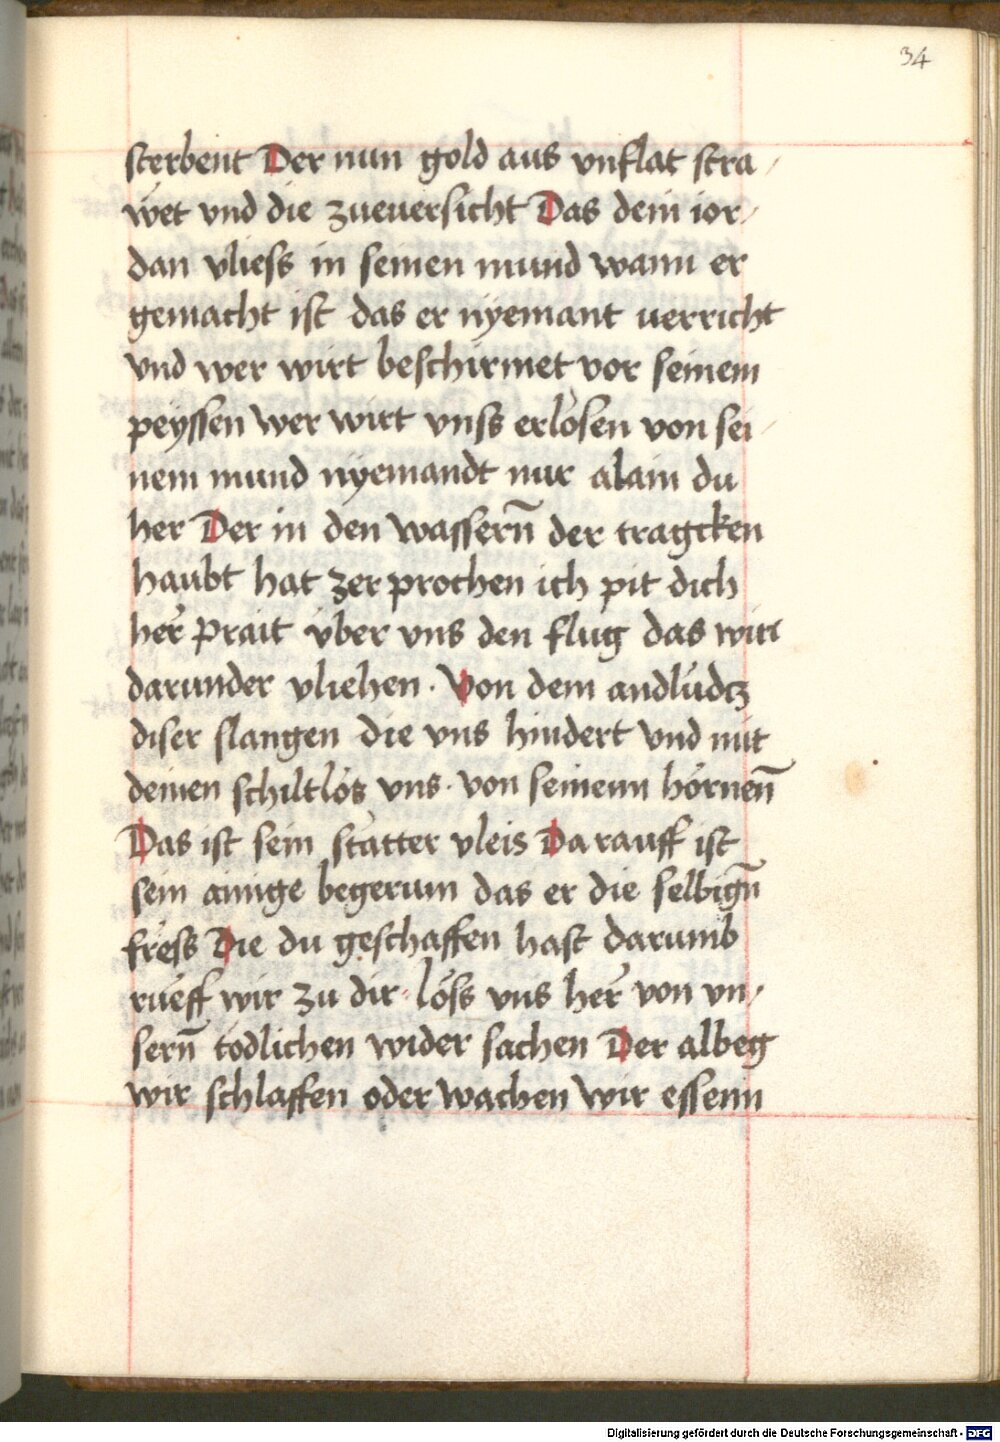 34
sterbent Der nun gold aus vnflat stra-
wet vnd die zueuersicht Das dein ior-
dan vliess in seinen mund wann er
gemacht ist das er nyemant uerricht
vnd wer wirt beschirmet vor seinem
peyssen wer wirt vnss erlösen von sei-
nem mund nyemandt nur alain du
her Der in den wassern̄ der tragcken
haubt hat zerprochen ich pit dich
her Prait vber vns den flug das wir
darunder vliehen · Von dem andlüdcz
diser slangen die vns hindert vnd mit
deinen schilt lös vns · von seinenn hörnen̄
Das ist sein stätter vleis Darauff ist
sein ainige begerum das er die selbign̄
fress Die du geschaffen hast darumb
rüeff wir zu dir · löss vns her von vn-
sern̄ todlichen widersachen Der albeg
wir schlaffen oder wachen wir essenn
Digitalisierung gefördert durch die Deutsche Forschungsgemeinschaft - DFG